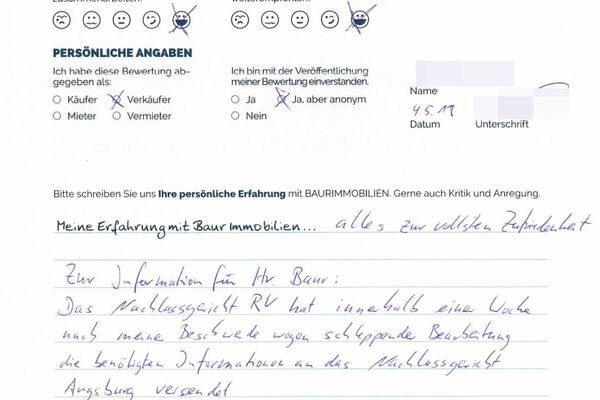 zusammenarbeiten. weiterempfehlen.
PERSÖNLICHE ANGABEN
Ich habe diese Bewertung ab-
gegeben als:
Käufer Verkäufer
Mieter Vermieter
Ich bin mit der Veröffentlichung
meiner Bewertung einverstanden.
Ja Ja, aber anonym
Nein
Name
4.5.19
Datum Unterschrift
Bitte schreiben Sie uns Ihre persönliche Erfahrung mit BAURIMMOBILIEN. Gerne auch Kritik und Anregung.
Meine Erfahrung mit Baur Immobilien... alles zur vollsten Zufriedenheit
Zur Information für Hr. Baur:
Das Nachlassgericht RV hat innerhalb einer Woche
nach meiner Beschwerde wegen schleppender Bearbeitung
die benötigten Informationen an das Nachlassgericht
Augsburg versendet